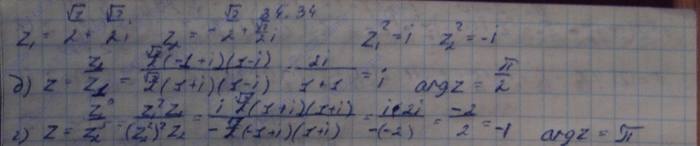 34.34
z₁ = √2/2 + √2/2 i   z₂ = -√2/2 + √2/2 i   z₁² = i   z₂² = -i
д) z = z₂/z₁ = √2(-1+i)(1-i) / √2(1+i)(1-i) = 2i / 1+1 = i   arg z = π/2
z = z₁³ = z₁² z₁ / (z₂²)² z₂ = i √2(1+i)(1+i) / -√2(-1+i)(1+i) = i·2i / -(-2) = -2/2 = -1   arg z = π